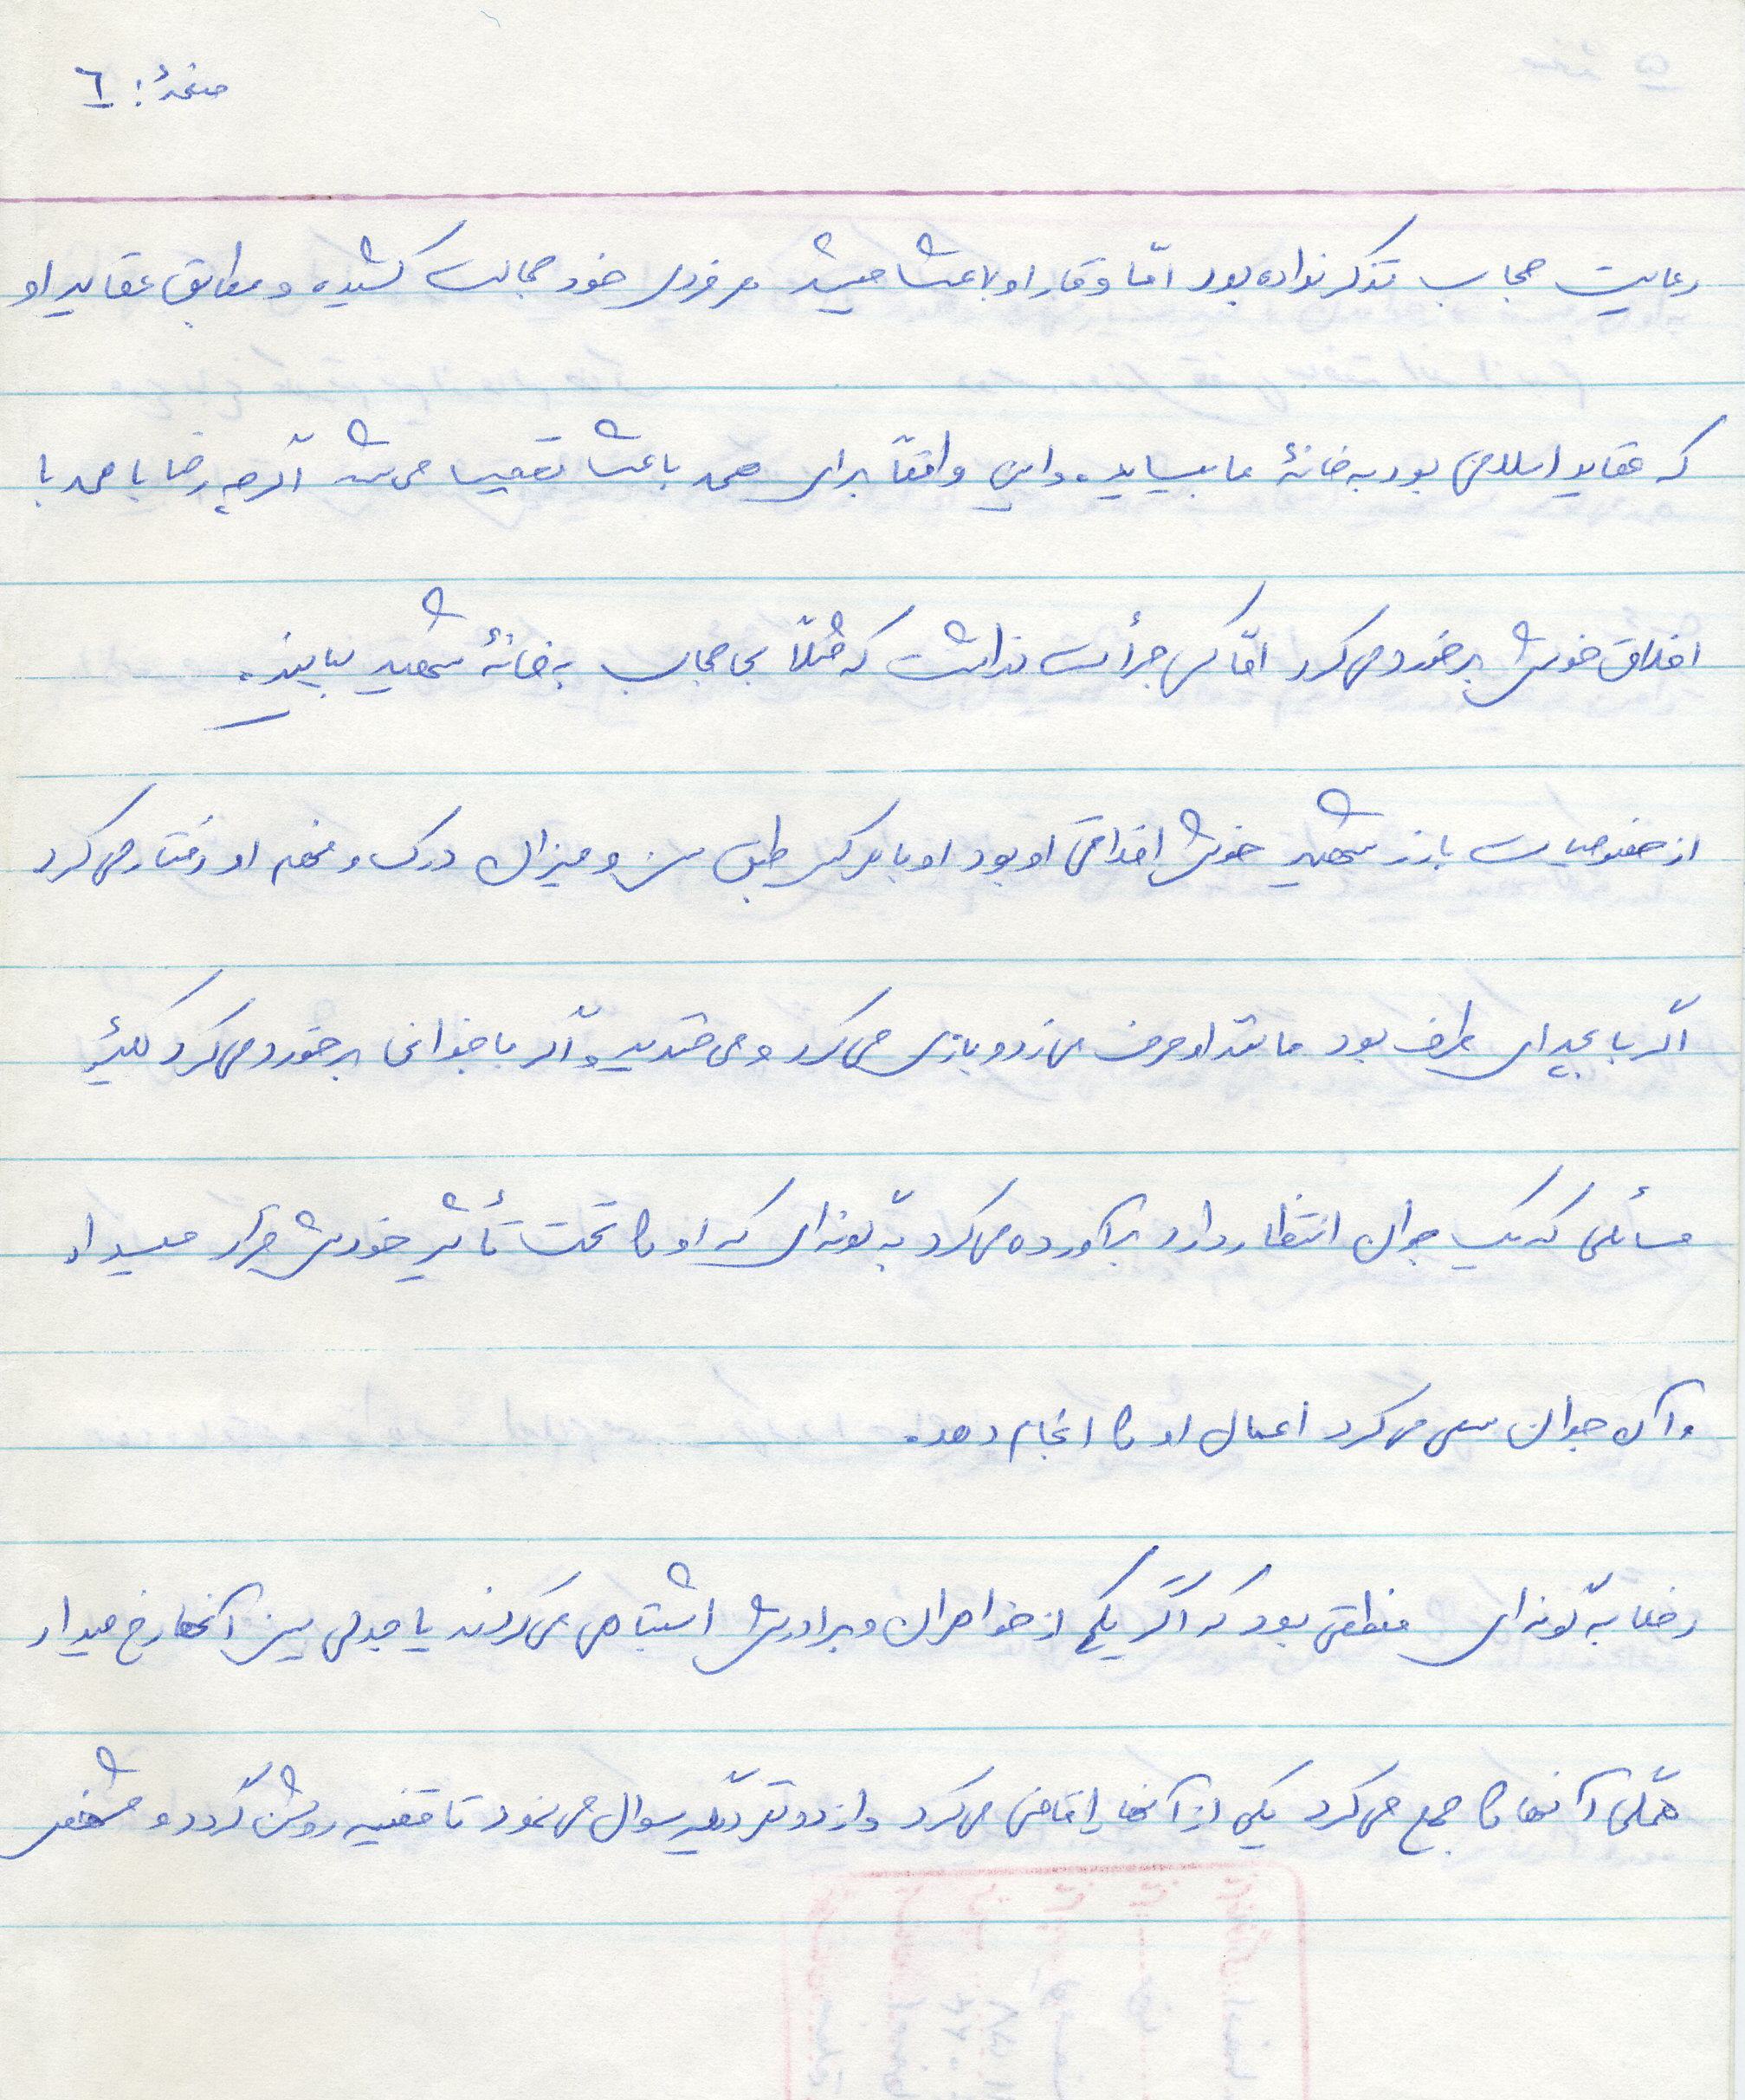 صفحهٔ: ٦
رعایت حجاب تذکر نداده بود امّا وقار او باعث میشد هر فردی خود خجالت کشیده و مطابق عقاید او
که عقاید اسلامی بود به خانهٔ ما بیاید. و این واقعاً برای همه باعث تعجب می شد اگرچه رضا با همه با
اخلاق خوش برخورد می کرد امّا کسی جرأت نداشت که مثلاً بی حجاب به خانهٔ شهید بیایند.
از خصوصیات بارز شهید خوش اخلاقی او بود او با هر کس طبق سن و میزان درک و فهم او رفتار می کرد
اگر با بچه ای طرف بود مانند او حرف می زد و بازی می کرد و می خندید و اگر با جوانی برخورد می کرد کلیهٔ
مسائلی که یک جوان انتظار دارد برآورده می کرد به گونه ای که او را تحت تأثیر خودش قرار میداد
و آن جوان سعی می کرد اعمال او را انجام دهد.
رضا به گونه ای منطقی بود که اگر یکی از خواهران و برادرش اشتباهی می کردند یا جدلی بین آنها رخ میداد
همگی آنها را جمع می کرد یکی از آنها را قاضی می کرد و از دو نفر دیگر سوال می نمود تا قضیه روشن گردد و مشخص